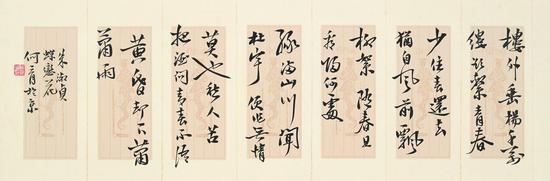 樓外垂楊千萬
缕欲繫青春
少住春還去
猶自風前飄
柳絮随春且
看归何處
绿满山川聞
杜宇便作無情
莫也愁人苦
把酒问春春不语
黄昏却下蕭
蕭雨
朱淑貞
蝶戀花
何於京